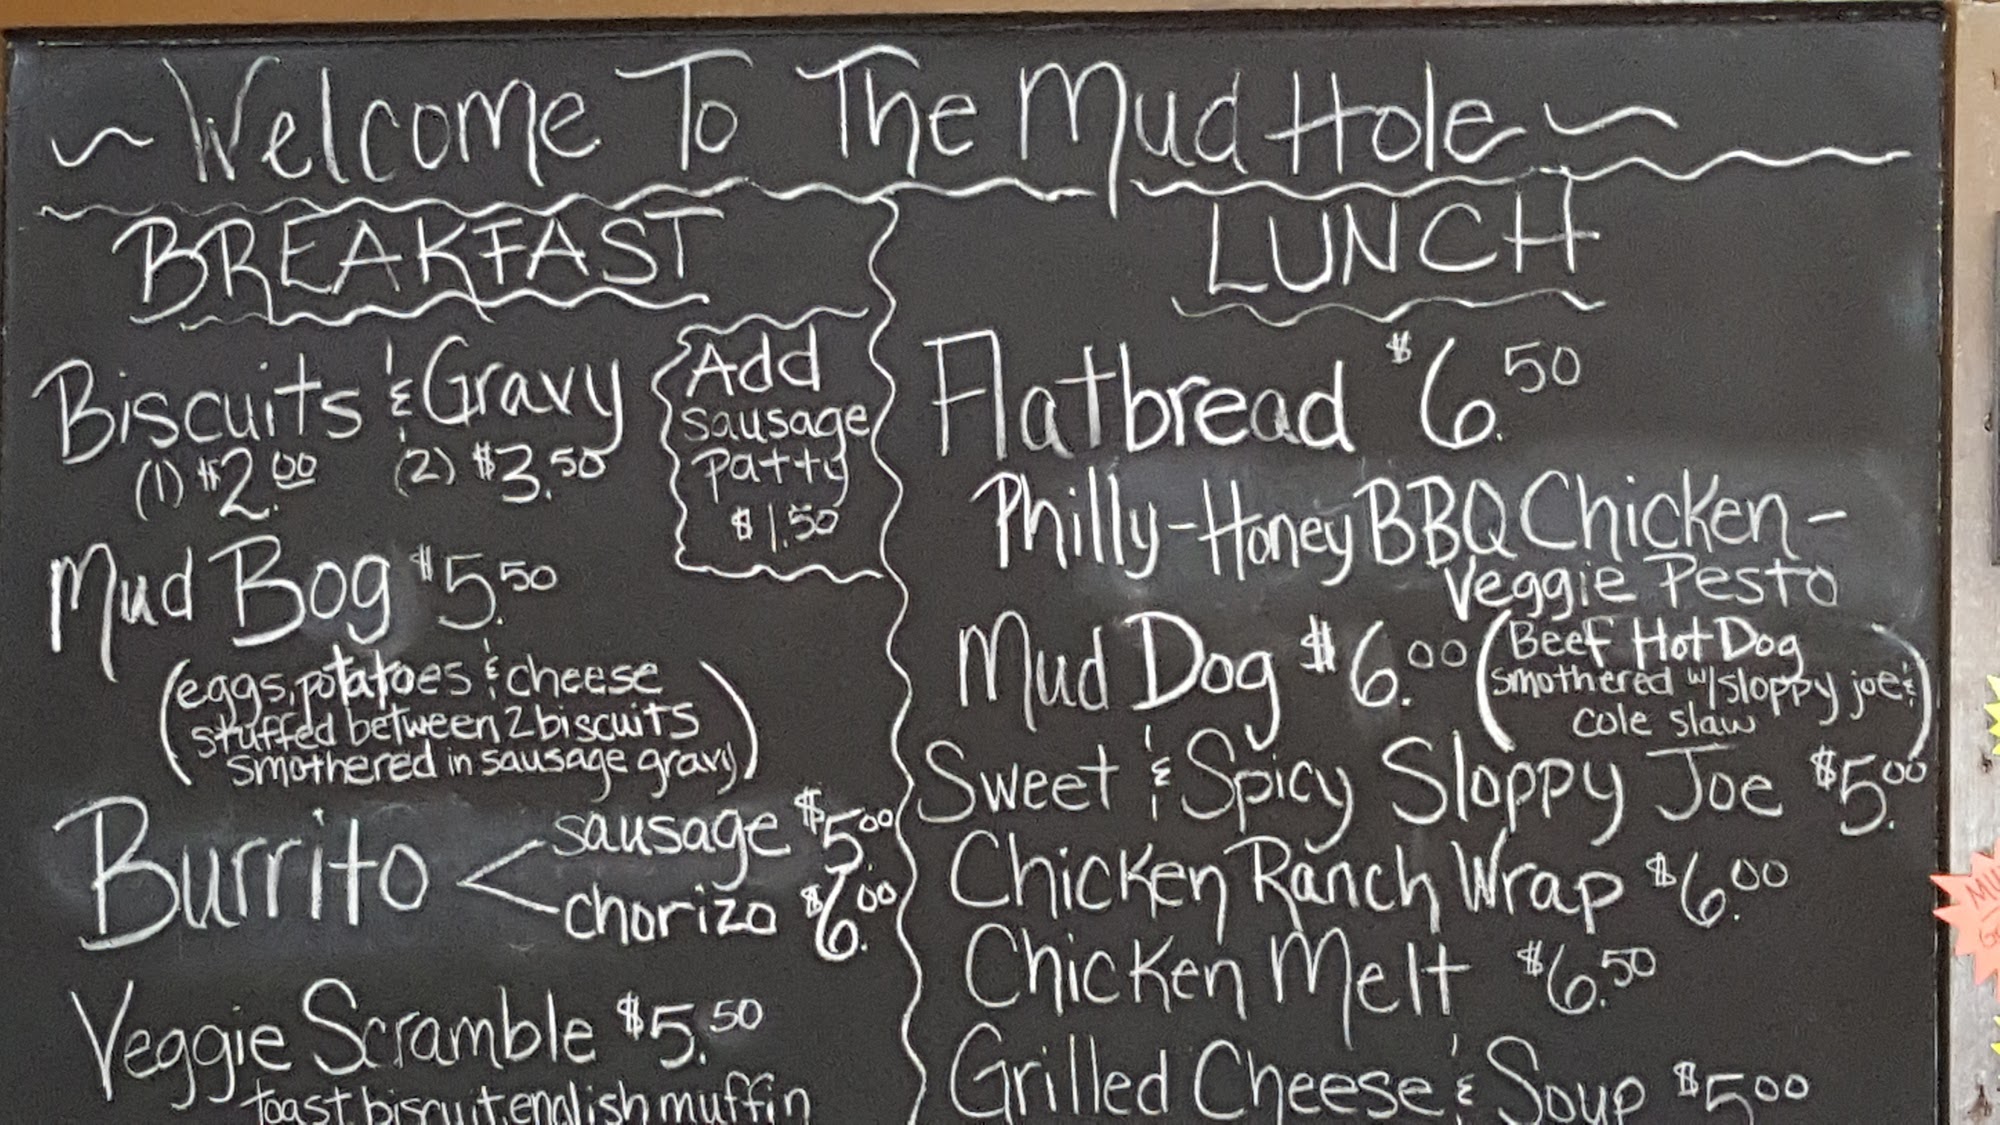 ~ Welcome To The Mud Hole ~
BREAKFAST
Biscuits & Gravy
(1) $2.00 (2) $3.50
Add
sausage
patty
$1.50
Mud Bog $5.50
(eggs, potatoes & cheese
stuffed between 2 biscuits
smothered in sausage gravy)
Burrito < sausage $5.00
chorizo $6.00
Veggie Scramble $5.50
toast, biscuit, english muffin
LUNCH
Flatbread $6.50
Philly - Honey BBQ Chicken -
Veggie Pesto
Mud Dog $6.00 (Beef Hot Dog
smothered w/ sloppy joe &
cole slaw)
Sweet & Spicy Sloppy Joe $5.00
Chicken Ranch Wrap $6.00
Chicken Melt $6.50
Grilled Cheese & Soup $5.00